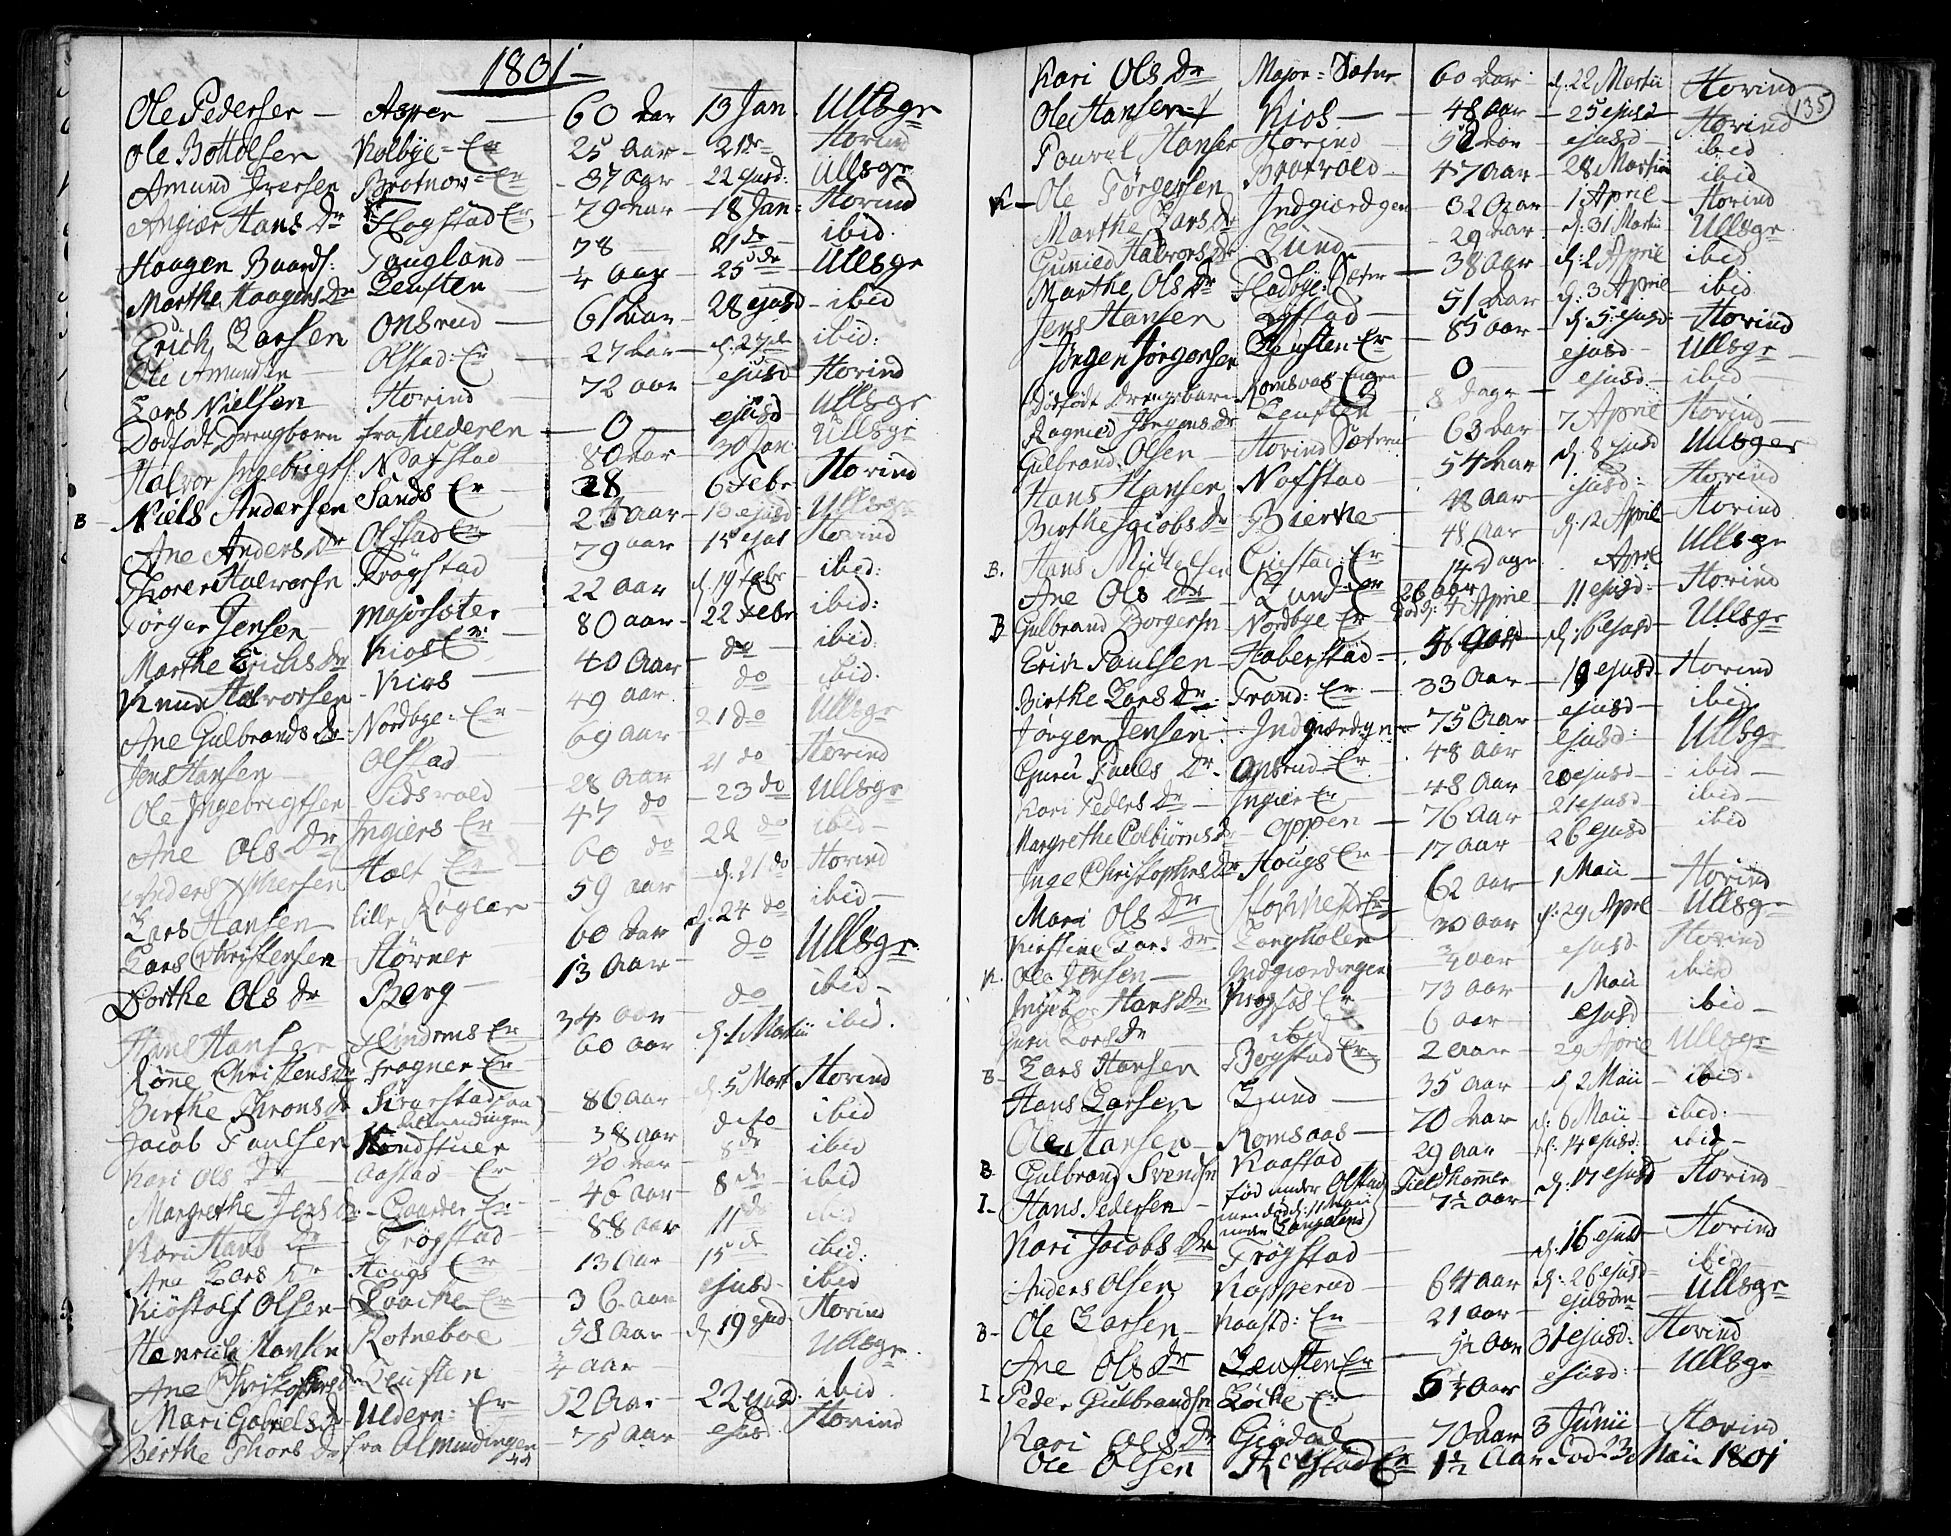 1801
Ole Pedersen — Asper — 60 Aar 13 Jan. Ullsgr
Ole Bottolsen Kolbye-Er 25 Aar — 21de — Hovind
Amund Iversen Brotnov-Er — 37 Aar — 22 ejusd: Ullsgr
Angiær Hans Dr Flogstad Er — 79 Aar — 18 Jan: — Hovind
Haagen Baards: Taugland — 78 — 21 do — ibid.
Marthe Haagens Dr Leusten — ¼ Aar — 25 de — Ullsgr
Erich Larsen Onsrud — 61 Aar — 28 ejusd — ibid
Ole Amundsen Olstad-Er — 27 Aar — d: 27de ibid:
Lars Nielsen — Hovind — 72 aar — ejusd — Hovind
Dødfødt Drengbarn fra Mederen — 0 — ejusd — Ullsgr
Halvor Ingebrigts: Nafstad — 80 Aar — 30 Jan: Ullsgr
B — Niels Andersen Sands Er — 28 — 6 Febr Hovind
Ane Anders Dr Olstad Er — Aar — 13 ejusd: Ullsgr
Thorer Halvorsn Frøgstad — 79 aar — 15 ejus Hovind
Jørger Jensen Majorsæter 22 Aar — d. 19 Febr — ibid:
Marthe Erichs Dr Kios Er: 80 aar — 22 Febr ibid:
Knud Halvorsen — Kios — 40 Aar — do — ibid:
Ane Gulbrands Dr. Nordbye-Er — 49 aar — do — ibid.
Jens Hansen Olstad — 69 aar — 21 do — Ullsgr
Ole Ingebrigtsen Eidsvold — 28 Aar — 21 do Hovind
Ane Ols Dr Ingiers Er 47 do — 23 do — Ullsgr
Anders Holt Er 60 do 22 do — ibid —
Lars Hansen lille Roglar — 59 aar — d: 21 do Hovind
Lars Christensen — Størner 60 Aar d. 24 do ibid —
Dorthe Ols Dr Berg — 13 Aar — do Ullsgr.
Hans Hansen Hindrens Er — 34 aar — do ibid —
Rønne Christens Dr Fragner Er 60 aar d. 1 Martii ibid.
Birthe Throns Dr Sivarstad fra Almendingen — 86 Aar — d. 5 Mart Hovind
Jacob Paulsen Hondstuer — 38 Aar — dito ibid
Kari Ols Dr Aastad — Er — 40 Aar — 8 de ibid
Margrethe Jens Dr: — Gaarder Er — 46 Aar — 8 de — ibid
Kari Hans Dr Frøgstad — 88 aar — 11 de ibid
Ane Lars Dr Haugs Er — 13 Aar — 15 de — ibid:
Kiøstolf Olsen — Laache Er — 36 Aar ejusd — ibid
Henrich Hansen Rotneboe — 58 Aar — d 19 ejusd Hovind
Ane Christophers Dr Leusten ¾ aar — Ullsgr
Mari Gabriels Dr Uldern: — Er — 52 Aar — 22 ejusd. ibid.
Birthe Thors Dr fra Almendingen — 75 aar — ejusd Hovind
135
Kari Ols Dr Major-Sætne 60 Aar d. 22 Martii Hovind
Ole Hansen — Kios — 48 Aar — 25 ejusd — Hovind
Pouvel Hansen Hovind — Aar — ejusd — ibid
K — Ole Jørgensen Brotvold — 47 Aar — 28 Martii — ibid
Marthe Lars Dr Indgiærdgen 32 Aar — 1 April — Hovind
Gunild Halvors Dr Lund — 29 Aar — d: 31 Martii — Ullsgr
Marthe Ols Dr Fladbye: Sæter — 38 Aar — d: 2 April ibid
Jens Hansen Lystad — 51 Aar — d: 3 April — ibid
Jørgen Jørgensen Leusten-Er — 85 Aar — d: 5 ejusd: Hovind
Dødfødt Drengebarn — Romsaas Engen — 0 — ejusd — Ullsgr —
Ragnild Jørgens Dr Leusten — 8 dage — ejusd — ibid —
Gulbrand Olsen — Hovind Sætren 63 Aar — 7 April — Hovind —
Hans Hansen Nafstad — 54 Aar — d. 8 ejusd Ullsger
Birthe Jacobs Dr Bierke — 48 Aar — ejusd: — Hovind
B. Hans Michelsen Giestad-Er — 48 Aar — d. 12 April — Hovind
Ane Ols Dr Lund-Er 14 Dage April Ullsgr
B Gulbrand Borgersn — Nordbye Er 26 Aar død d: 4 Aprile — 11 ejusd: — Hovind
Erik Paulsen — Haberstad — . 56 Aar — d. 16 ejusd — Ullsgr
Birthe Lars Dr — Frand: Er — 33 Aar — 19 ejusd — Hovind
Jørgen Jensen — Indgiærdgn — 75 Aar — ejusd — ibid
Guru Paals Dr — Opsrud-Er — 48 Aar — ejusd: — Ullsgr
Kari Peders Dr — Ingier Er — 48 Aar 20 ejusd — ibid —
Margrethe Colbiørns Dr — Oppen — 76 Aar — 21 ejusd — ibid —
Inge Christophers Dr Haugs Er — 17 Aar — 26 ejusd ibid
Mari Ols Dr Er — 62 Aar — 1 Maii — Hovind
Kirstine Lars Dr — Langholen 30 Aar — d: 29 April — Ullsgr
K. Ole Jensen — Indgiærdingen ¾ aar — ejusd — Hovind
Ingebor Hans Dr Krogsos Er — 73 Aar — 1 Maii ibid
Guru Lars Dr — ibid — 6 aar — ejusd — ibid —
B — Lars Hansen Bogstad Er — 2 Aar — 29 April — Ullsgr
Hans Larsen Lund — 35 Aar — d 2 Maii — ibid.
Ole Hansen — Romsaas — 70 Aar — d: 6 Maii — ibid:
B. Gulbrand Svendsn Raastad 29 Aar — d: 14 ejusd: ibid —
I — Hans Pedersen — fød under Olstad men død d: 11 Maii under Langeland Fieldhammer 7½ Aar — d. 17 ejusd Hovind —
Kari Jacobs Dr Frøgstad — — d. 16 ejusd — Hovind
Anders Olsen Kopperud — 64 Aar — d. 26 ejusd — ibid —
B — Ole Larsen — Raastd: Er — 21 aar — ejusdm — Ullsgr
Ane Ols Dr Leusten Er — 5½ Aar 31 ejusd: Hovind
I Peder Gulbrandsn Løcke Er — 6½ Aar — ejusd: — Ullsgr
Kari Ols Dr Giødal — 70 Aar 3 Junii — Hovind
Ole Olsen Er — 1½ Aar død 23 Maii 1801